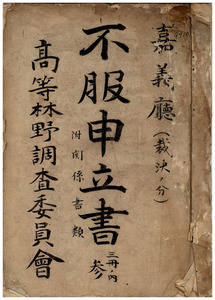 嘉義廳(裁決ノ分)
不服申立書
附関係書類
三冊ノ内
参
高等林野調査委員會